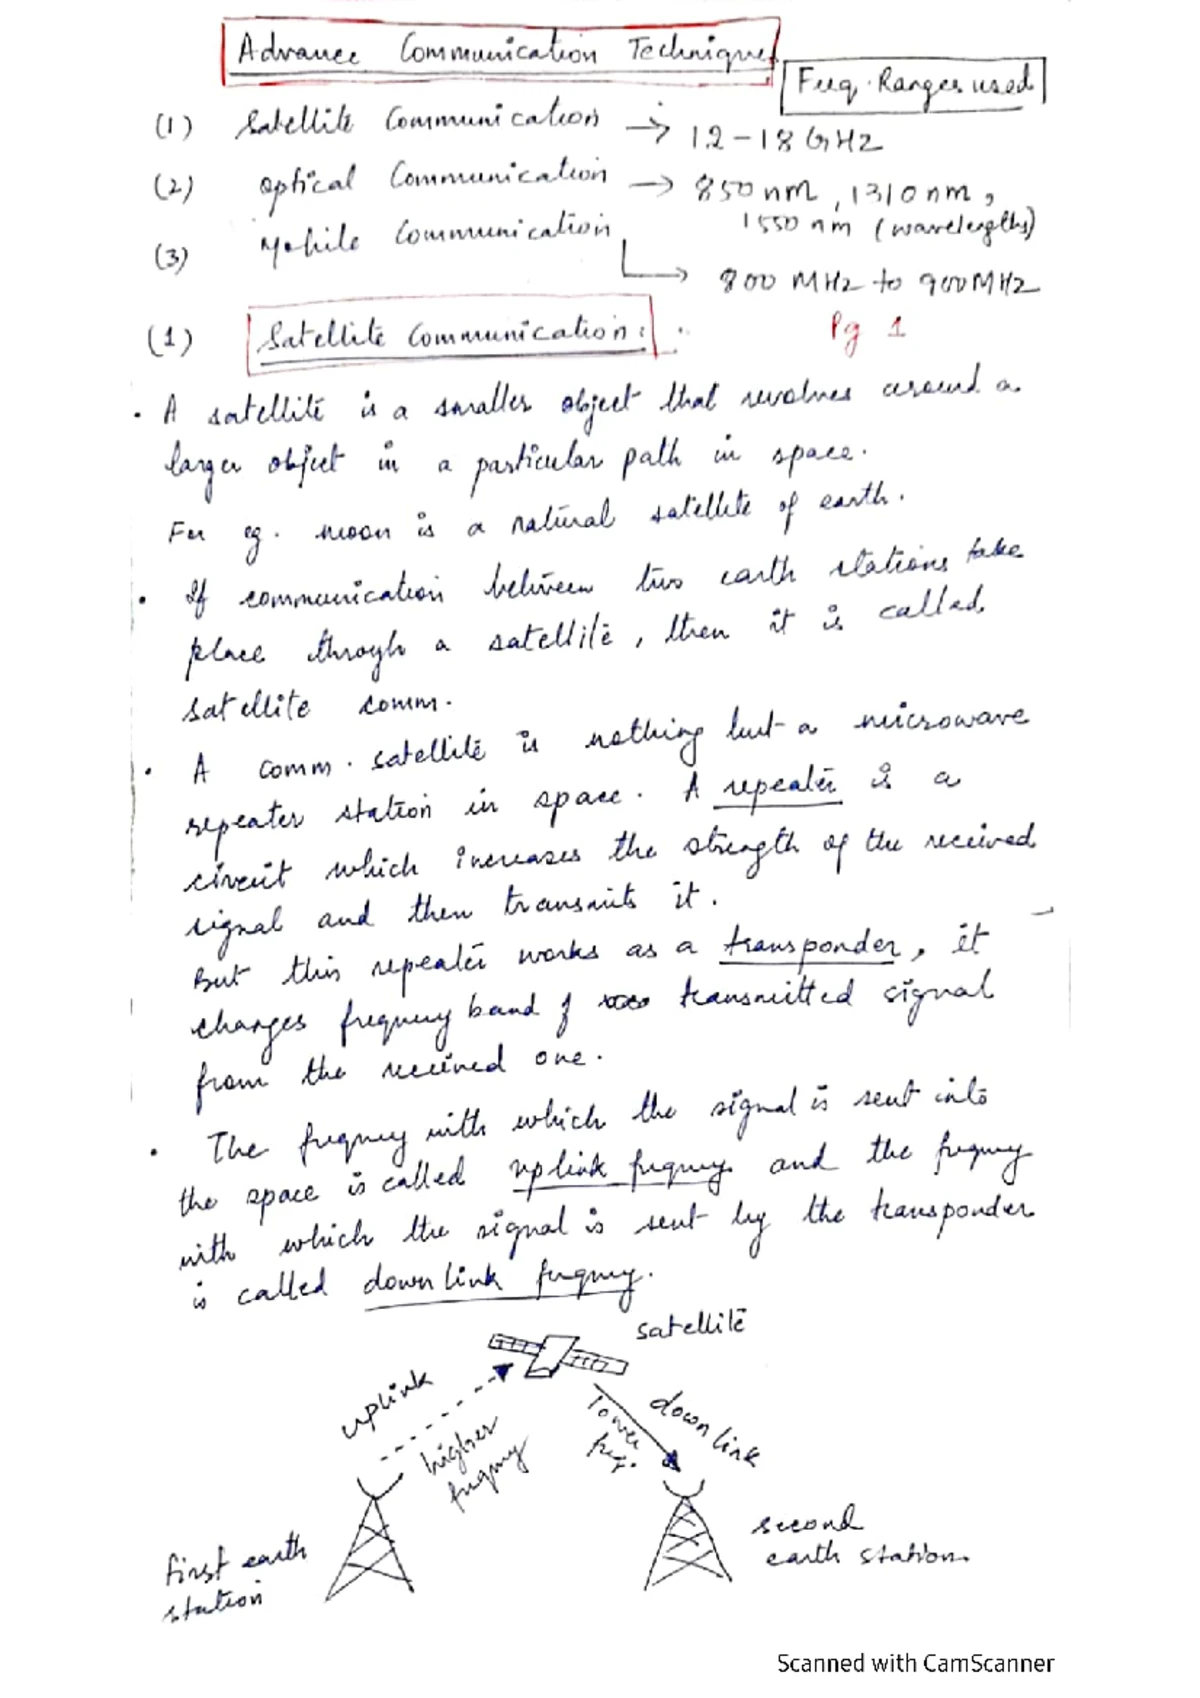 Advance Communication Techniques
Freq. Ranges used
(1) Satellite Communication → 12-18 GHz
(2) optical Communication → 850 nm, 1310 nm,
1550 nm (wavelengths)
(3) Mobile Communication
800 MHz to 900 MHz
(1) Satellite Communication: Pg 1
• A satellite is a smaller object that revolves around a
larger object in a particular path in space.
For eg. moon is a natural satellite of earth.
• If communication between two earth stations take
place through a satellite, then it is called
satellite comm.
• A comm. satellite is nothing but a microwave
repeater station in space. A repeater is a
circuit which increases the strength of the received
signal and then transmits it.
But this repeater works as a transponder, it
changes frequency band of transmitted signal
from the received one.
• The frequency with which the signal is sent into
the space is called uplink frequency and the frequency
with which the signal is sent by the transponder
is called down link frequency.
satellite
uplink
higher
frequency
lower
freq.
down link
first earth
station
second
earth station.
Scanned with CamScanner